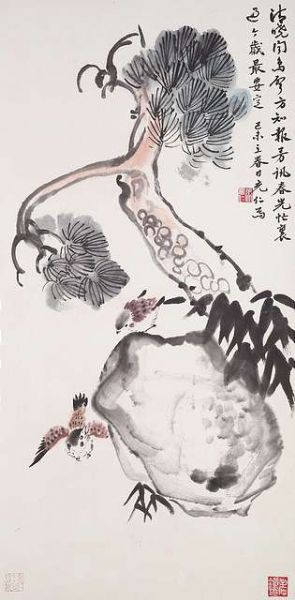 清晓闻鸟声方知报芳讯春光忙里
过今岁最安定 己未立春日光仁写